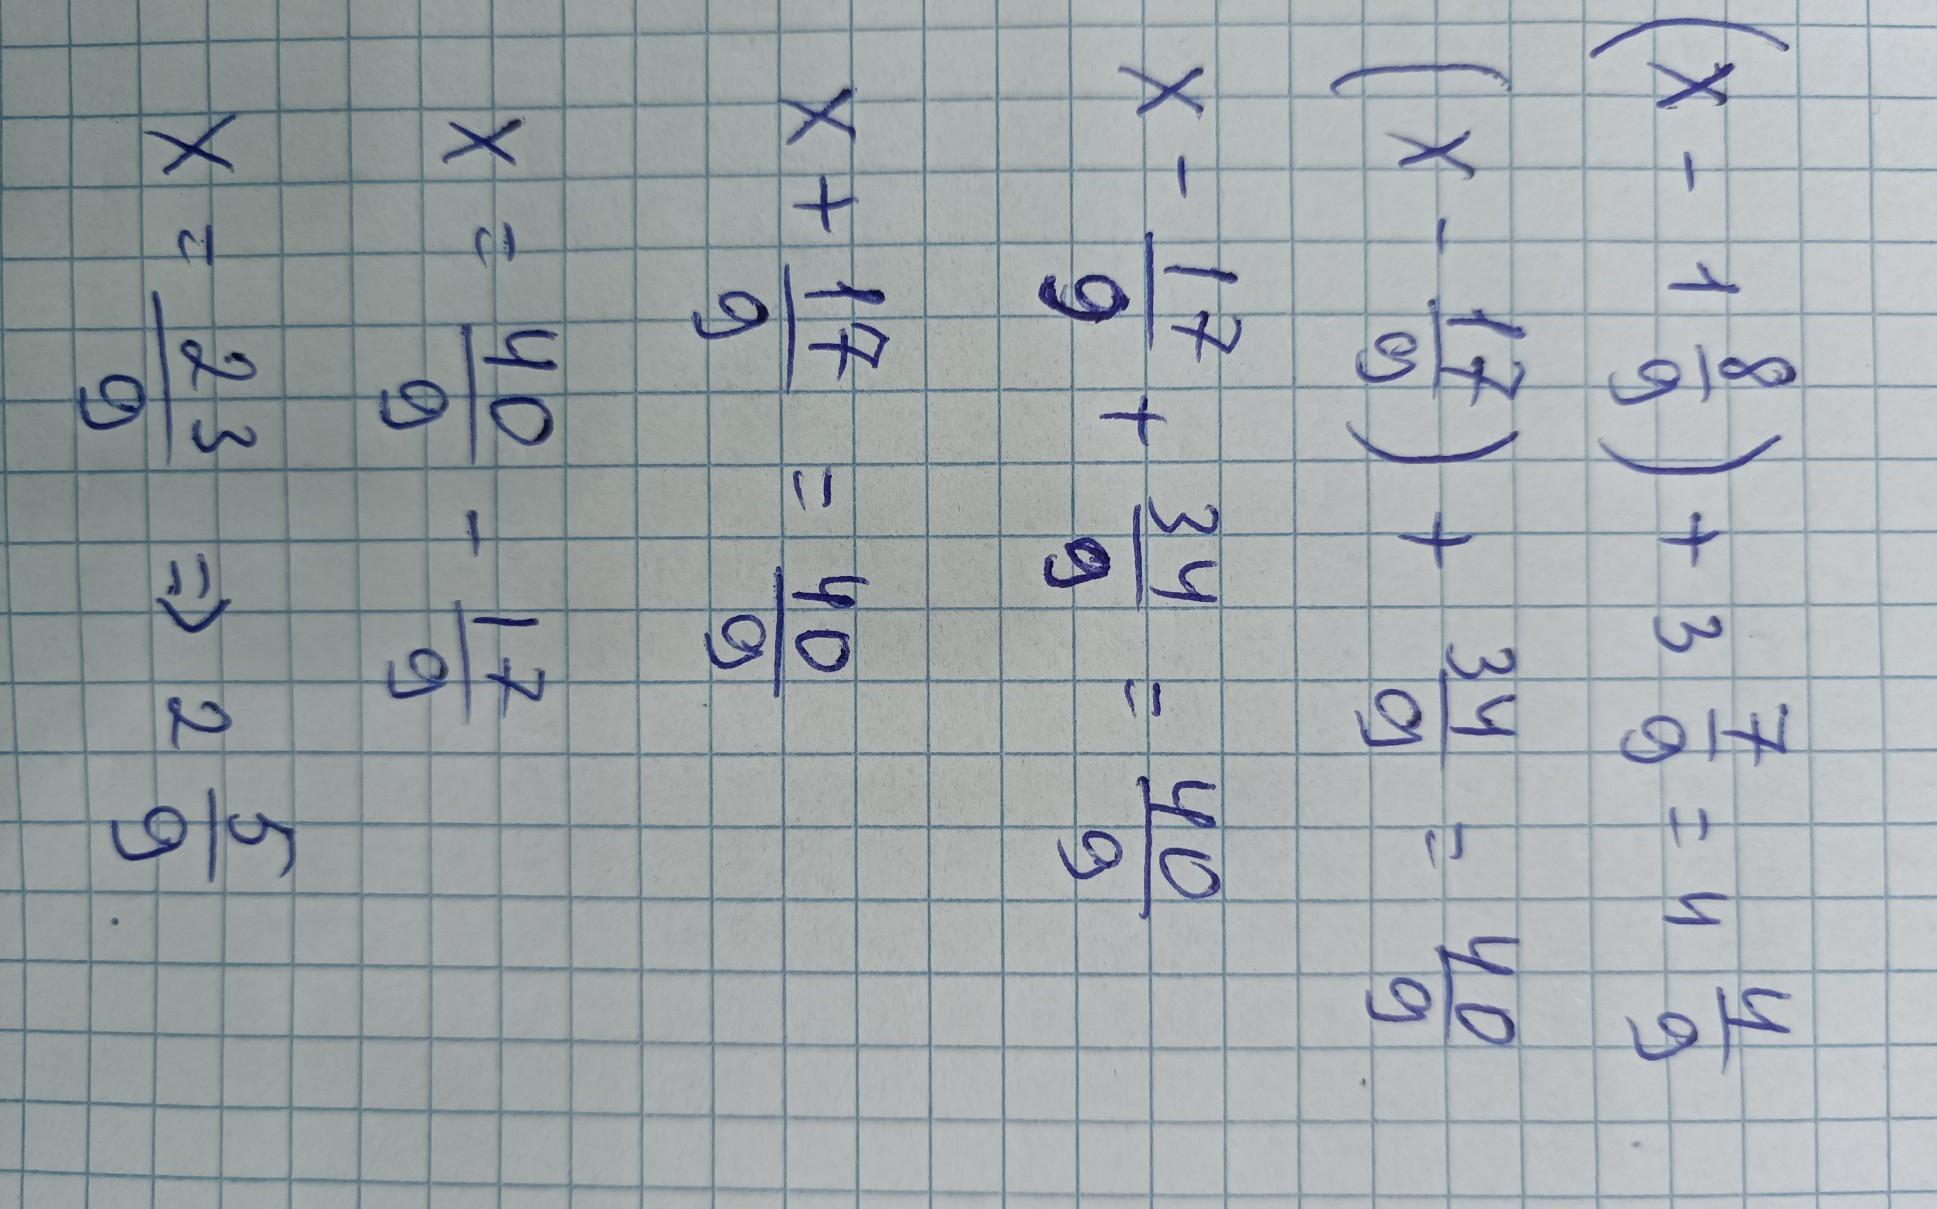 (x - 1 8/9) + 3 7/9 = 4 4/9
(x - 17/9) + 34/9 = 40/9
x - 17/9 + 34/9 = 40/9
x + 17/9 = 40/9
x = 40/9 - 17/9
x = 23/9 ⇒ 2 5/9